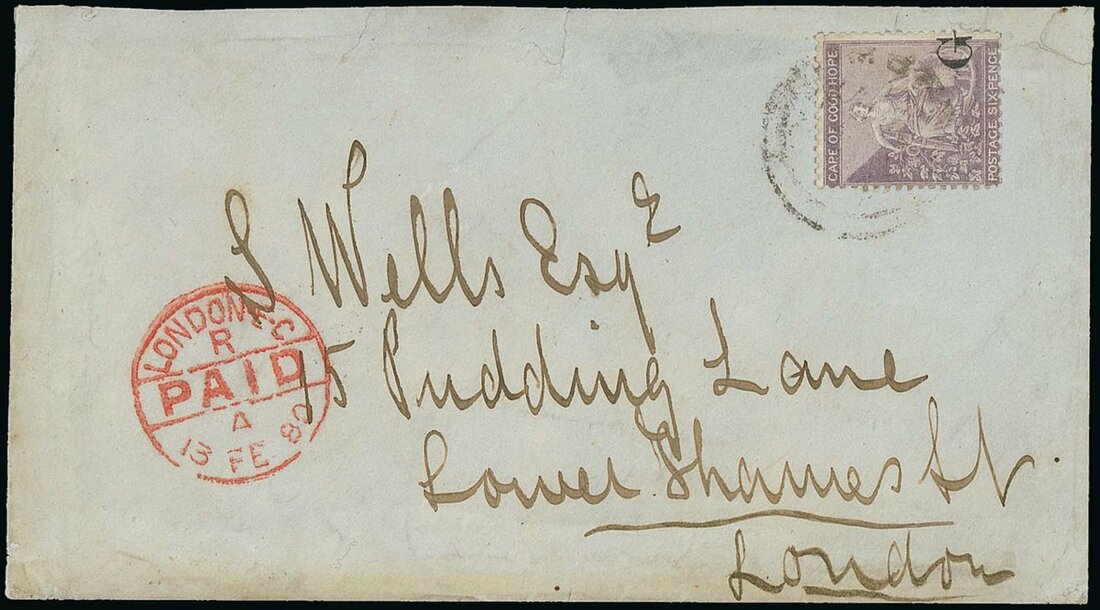 G
CAPE OF GOOD HOPE
POSTAGE SIX PENCE
S Wells Esqe
15 Pudding Lane
Lower Thames St
London
LONDON E·C
R
PAID
A
13 FE 80